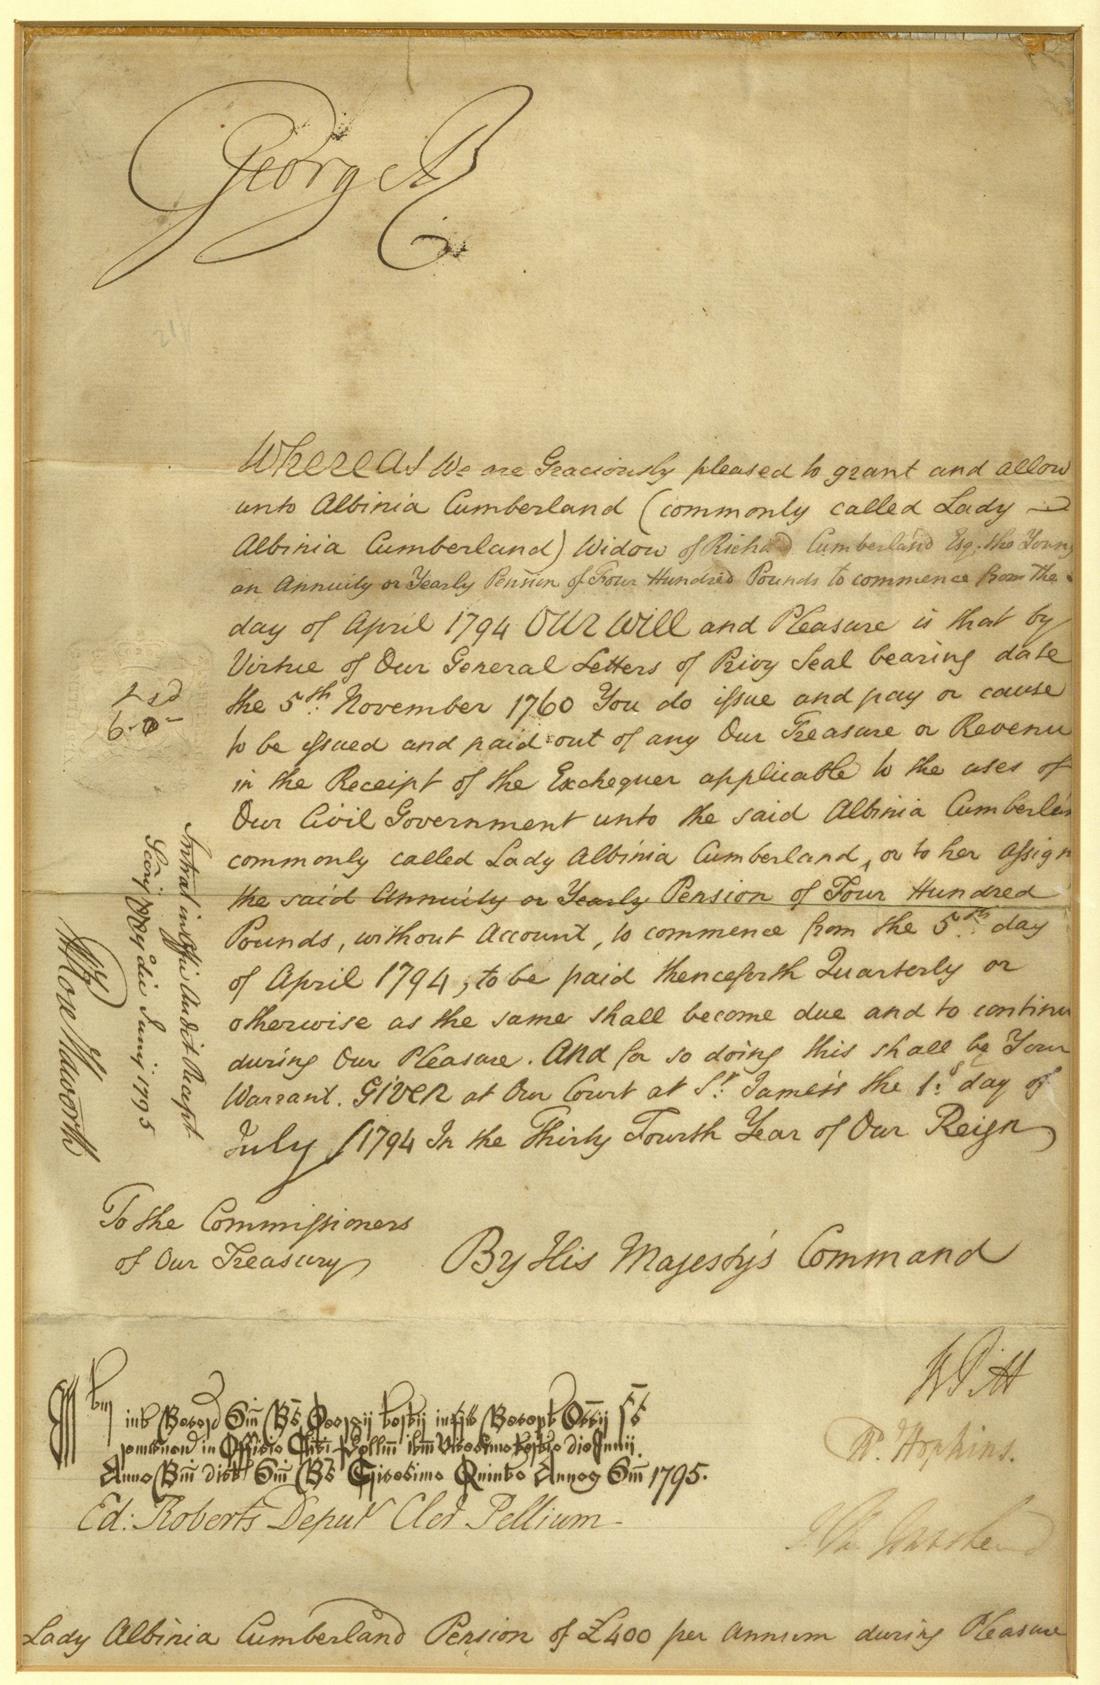 George R
Whereas We are Graciously pleased to grant and allow
unto Albinia Cumberland (commonly called Lady
Albinia Cumberland) Widow of Richard Cumberland Esq. the Youn
an Annuity or Yearly Pension of Four Hundred Pounds to commence from the
day of April 1794 Our Will and Pleasure is that by
Virtue of Our General Letters of Privy Seal bearing date
the 5th November 1760 You do issue and pay or cause
to be issued and paid out of any Our Treasure or Revenu
in the Receipt of the Exchequer applicable to the uses of
Our Civil Government unto the said Albinia Cumberlan
commonly called Lady Albinia Cumberland, or to her Assign
the said Annuity or Yearly Pension of Four Hundred
Pounds, without Account, to commence from the 5th day
of April 1794, to be paid thenceforth Quarterly or
otherwise as the same shall become due and to continu
during Our Pleasure. And for so doing this shall be Your
Warrant. Given at Our Court at St. James's the 1st day of
July 1794 In the Thirty Fourth Year of Our Reign
To the Commissioners
of Our Treasury
By His Majesty's Command
W Pitt
R. Hopkins.
Anno 1795.
Ed: Roberts Deput Cler Pellium
Lady Albinia Cumberland Pension of £400 per Annum during Pleasure